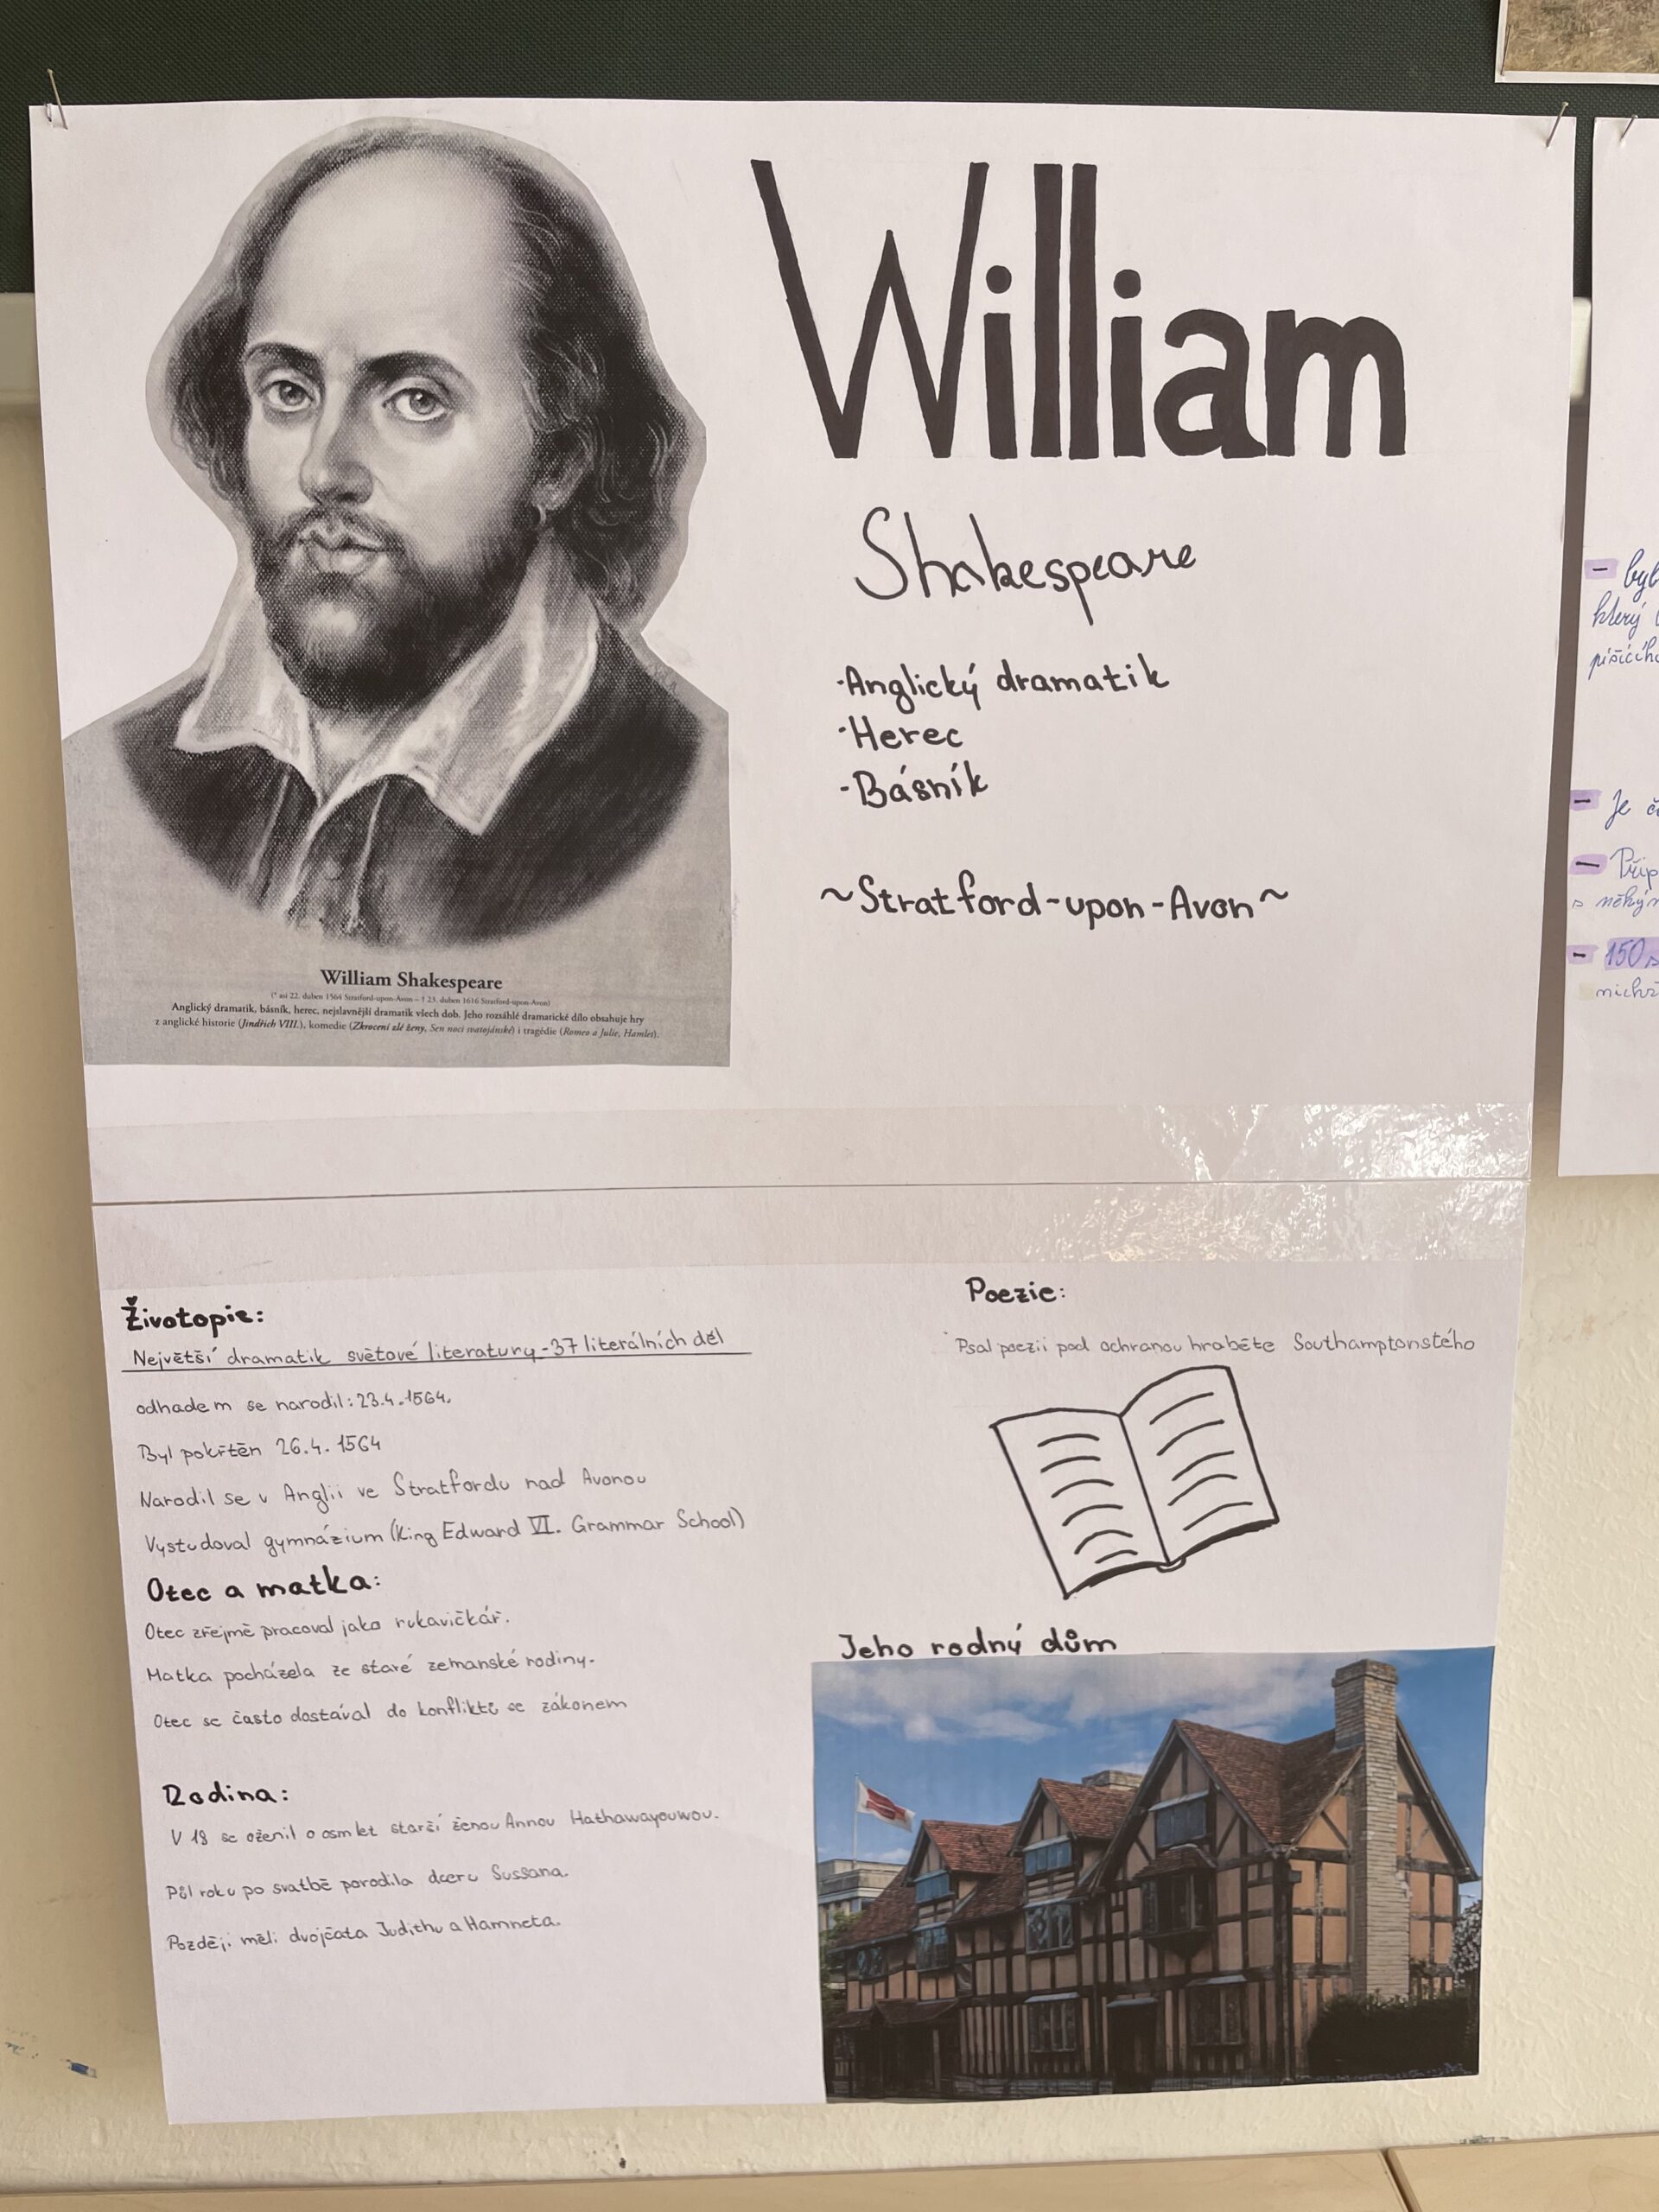 William
Shakespeare
·Anglický dramatik
·Herec
-Básník
~Stratford-upon-Avon~
William Shakespeare
(* asi 22. duben 1564 Stratford-upon-Avon – † 23. duben 1616 Stratford-upon-Avon)
Anglický dramatik, básník, herec, nejslavnější dramatik všech dob. Jeho rozsáhlé dramatické dílo obsahuje hry
z anglické historie (Jindřich VIII.), komedie (Zkrocení zlé ženy, Sen noci svatojánské) i tragédie (Romeo a Julie, Hamlet).
Životopis:
Největší dramatik světové literatury-37 literálních děl
odhadem se narodil: 23.4.1564.
Byl pokřtěn 26.4.1564
Narodil se v Anglii ve Stratfordu nad Avonou
Vystudoval gymnázium (King Edward VI. Grammar School)
Otec a matka:
Otec zřejmě pracoval jako rukavičkář.
Matka pocházela ze staré zemanské rodiny.
Otec se často dostával do konfliktů se zákonem
Rodina:
V 18 se oženil o osm let starší ženou Annou Hathawayouwou.
Půl roku po svatbě porodila dceru Sussana.
Později měli dvojčata Judithu a Hamneta.
Poezie:
Psal poezii pod ochranou hraběte Southamptonstého
Jeho rodný dům
- byl
který
- Je
-
s
- 150